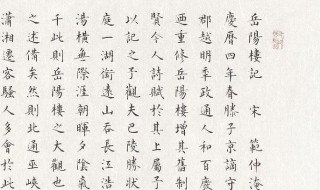 岳陽樓記 宋 範仲淹
慶曆四年春滕子京謫守
郡越明季政通人和百廢
重修岳陽樓增其舊制
賢今人詩賦於其上屬予
以記之予觀夫巴陵勝狀
庭一湖銜遠山吞長江浩
湯橫無際涯朝暉夕陰氣
千此則岳陽樓之大觀也
之述備矣然則北通巫峽
瀟湘遷客騷人多會於此